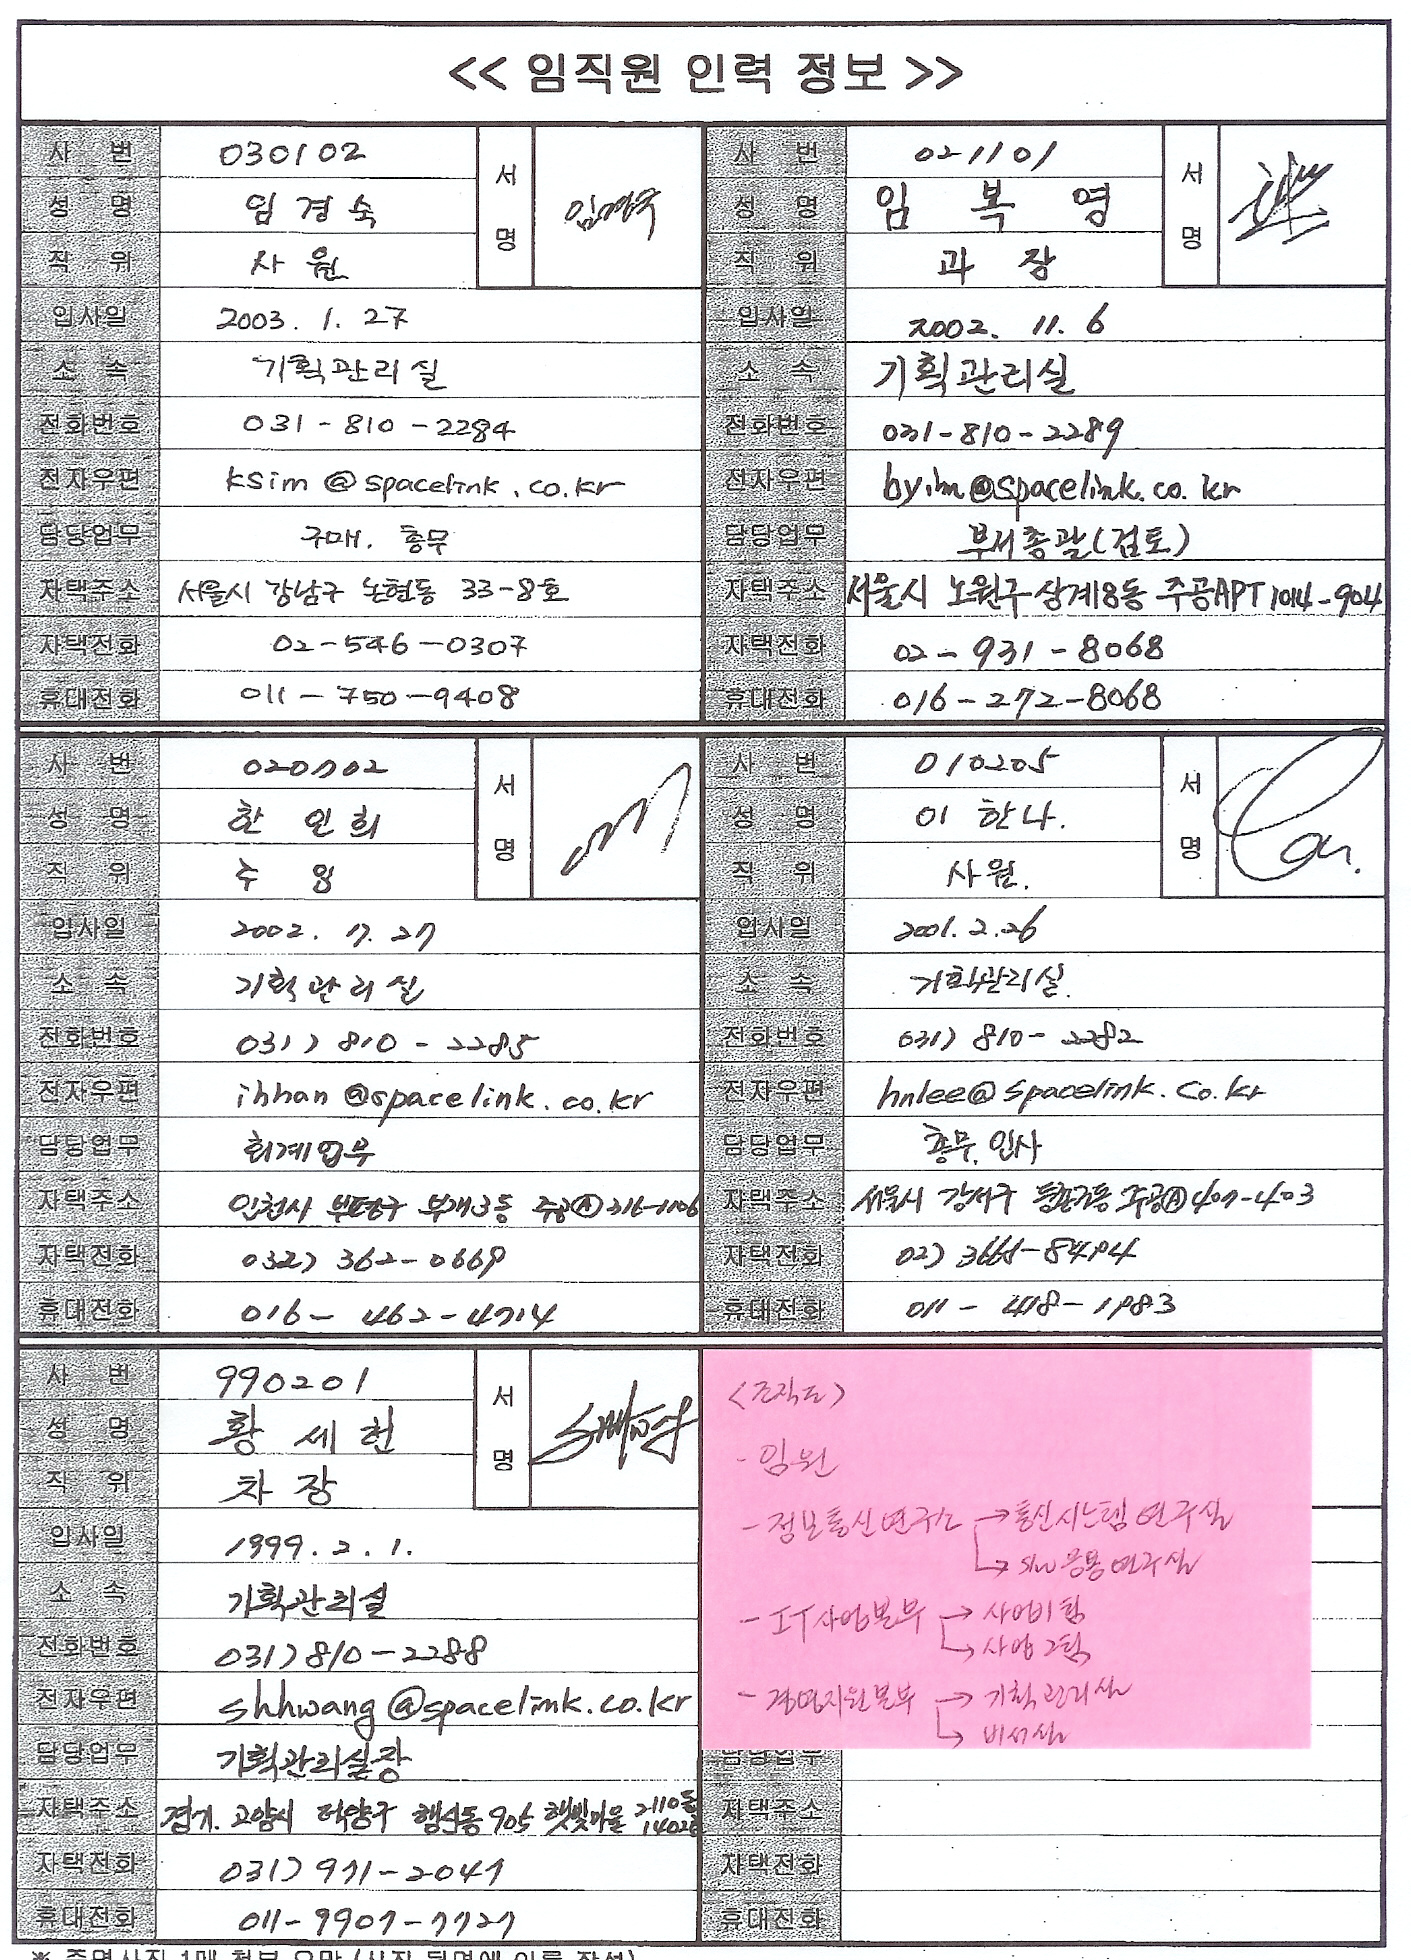 << 임직원 인력 정보 >>
사 번 030102 서 명 임경숙
성 명 임 경 숙
직 위 사 원
입사일 2003. 1. 27
소 속 기획관리실
전화번호 031-810-2284
전자우편 ksim@spacelink.co.kr
담당업무 구매. 총무
자택주소 서울시 강남구 논현동 33-8호
자택전화 02-546-0307
휴대전화 011-750-9408
사 번 021101 서 명
성 명 임 복 영
직 위 과 장
입사일 2002. 11. 6
소 속 기획관리실
전화번호 031-810-2289
전자우편 byim@spacelink.co.kr
담당업무 부서총괄(검토)
자택주소 서울시 노원구 상계8동 주공APT 1014-904
자택전화 02-931-8068
휴대전화 016-272-8068
사 번 020702 서 명
성 명 한 인 희
직 위 주 임
입사일 2002. 7. 27
소 속 기획관리실
전화번호 031) 810-2285
전자우편 ihhan@spacelink.co.kr
담당업무 회계업무
자택주소 인천시 부평구 부개3동 주공Ⓐ 316-1106
자택전화 032) 362-0669
휴대전화 016-462-4714
사 번 010205 서 명
성 명 이 한나.
직 위 사원.
입사일 2001. 2. 26
소 속 기획관리실.
전화번호 031) 810-2282
전자우편 hnlee@spacelink.co.kr
담당업무 총무, 인사
자택주소 서울시 강서구 주공Ⓐ 407-403
자택전화 02)
휴대전화 011-418-1983
사 번 990201 서 명
성 명 황 세 헌
직 위 차 장
입사일 1999. 2. 1.
소 속 기획관리실
전화번호 031) 810-2288
전자우편 shhwang@spacelink.co.kr
담당업무 기획관리실장
자택주소 경기. 고양시 덕양구 행신동 905 햇빛마을 2110동
자택전화 031) 971-2047
휴대전화 011-9907-7727
<조직도>
- 임원
- 정보통신연구소 → 통신시스템 연구실
→ S/W 응용연구실
- IT사업본부 → 사업1팀
→ 사업2팀
- 경영지원본부 → 기획관리실
→ 비서실
담당업무
자택주소
자택전화
휴대전화
※ 증명사진 1매 첨부 요망 (사진 뒷면에 이름 작성)